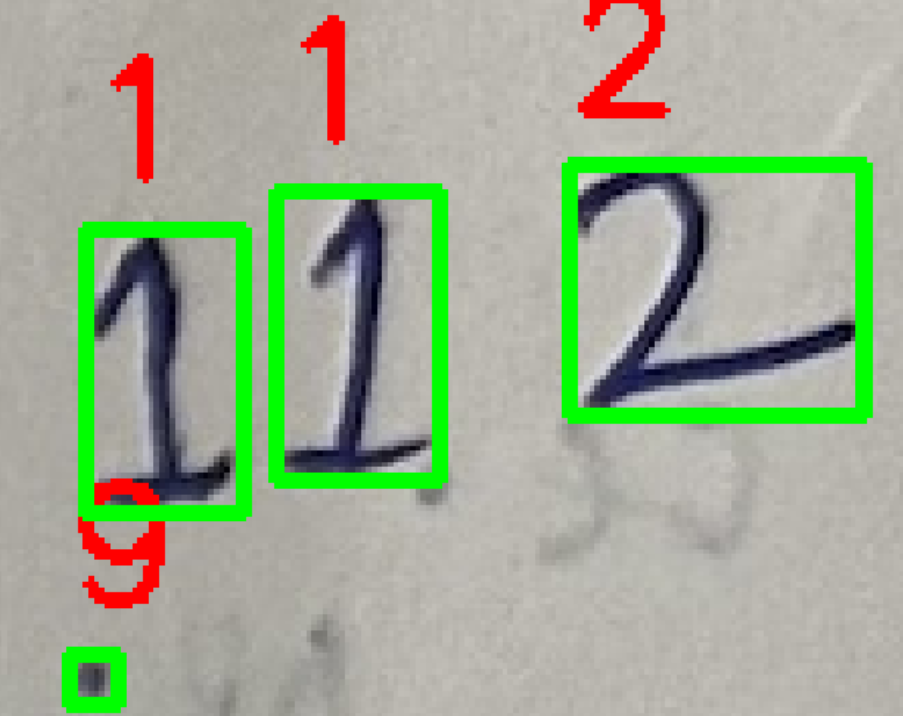 1 1 2
1 1 2
9